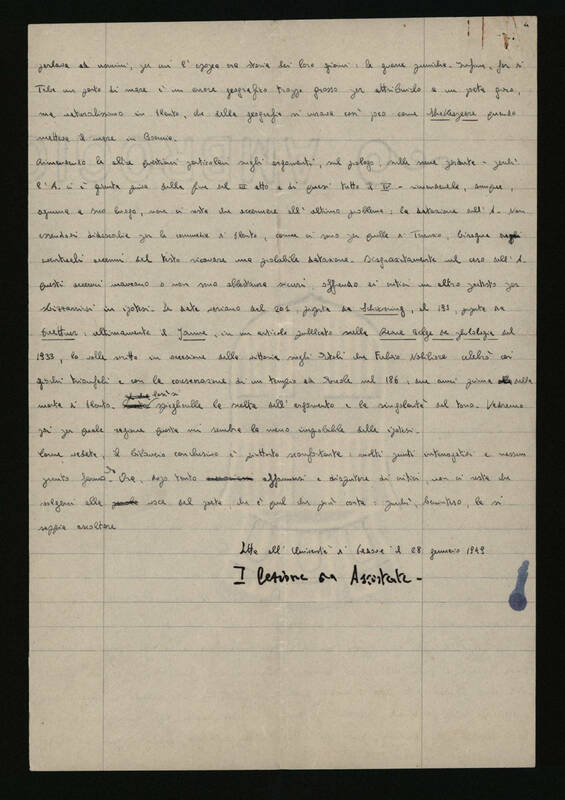 4
parlava ad uomini, per cui l'epopea era storia dei loro giorni: le guerre puniche. Infine, far di
Tebe un porto di mare è un errore geografico troppo grosso per attribuirlo a un poeta greco,
ma naturalissimo in Plauto, che della geografia si curava così poco come Shakespeare quando
metteva il mare in Boemia.
Rimandando le altre questioni particolari sugli argomenti, sul prologo, sulle scene perdute - perché
l'A. ci è giunta priva della fine del III atto e di quasi tutto il IV - rimandandole, dunque,
ognuna a suo luogo, non ci resta che accennare all'ultimo problema: la datazione dell'A. Non
essendoci didascalie per le commedie di Plauto, come ci sono per quelle di Terenzio, bisogna
eventuali accenni del testo ricavare una probabile datazione. Disgraziatamente nel caso dell'A.
questi accenni mancano o non sono abbastanza sicuri, offrendo ai critici un altro pretesto per
sbizzarrirsi in ipotesi. Le date variano dal 201, proposta da , al 191, proposta da
: ultimamente il Janne, in un articolo pubblicato nella Revue Belge de philologie del
1933, la volle scritta in occasione della vittoria sugli Etoli che Fulvio Nobiliore celebrò coi
giochi trionfali e con la consacrazione di un tempio ad Ercole nel 186: due anni prima della
morte di Plauto. così si spiegherebbe la scelta dell'argomento e la singolarità del tono. Vedremo
poi per quale ragione questa mi sembra la meno improbabile delle ipotesi.
Come vedete, il bilancio conclusivo è piuttosto sconfortante: molti punti interrogativi e nessun
punto fermo. Ora, dopo tanto affannarsi e disputare di critici, non ci resta che
volgerci alla voce del poeta, che è quel che più conta: purché, beninteso, la si
sappia ascoltare
Letta all'Università di Padova il 28 gennaio 1949
I Lezione da Assistente -